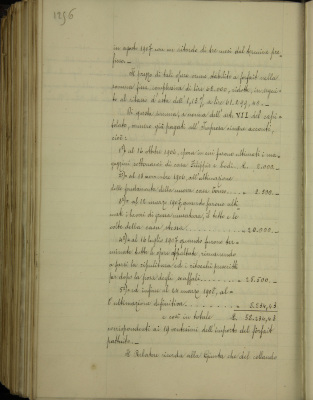 1296
in agosto 1907 con un ritardo di tre mesi dal termine pre-
fisso.
Il prezzo di tali opere venne stabilito a forfait nella
somma fissa, complessiva di lire 62.000, ridotte, in seguito
al ribasso d'asta dell' 1,30%, a lire 61.194,00.
Di questa somma, a norma dell'art. VII del capi-
tolato, vennero già pagati all'Impresa cinque acconti,
cioè:
1°) al 16 ottobre 1906, epoca in cui furono ultimati i ma-
gazzini sotterranei di casa L. 2.000.—
2°) al 18 novembre 1906, all'ultimazione
delle fondamenta della nuova casa " 2.500.—
3°) al 18 marzo 1907 quando furono ulti-
mati i lavori di pura muratura, il tetto e le
volte della casa stessa " 20.000.—
4°) al 10 luglio 1907 quando furono ter-
minate tutte le opere appaltate, rimanendo
a farsi la ripulitura ed i ritocchi prescritti
per dopo la posa degli scaffali " 25.500.—
5°) ed infine al 20 marzo 1908, al-
l'ultimazione definitiva "
e così in totale L.
corrispondenti ai 19 ventesimi dell'importo del forfait
pattuito.—
Il Relatore ricorda alla Giunta che del collaudo